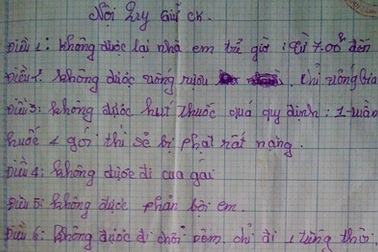 Nội Quy Giữ CK.
Điều 1: không được lại nhà em trể giờ: từ 7.00h đến
Điều 2: không được uống rượu Chỉ uống bia
Điều 3: không được hút thuốc quá quy định: 1 tuần
thuốc 4 gói thì sẽ bị phạt rất nặng.
Điều 4: không được đi cua gái
Điều 5: không được phản bội em.
Điều 6: không được đi chơi đêm, chỉ đi 1 tiếng thôi